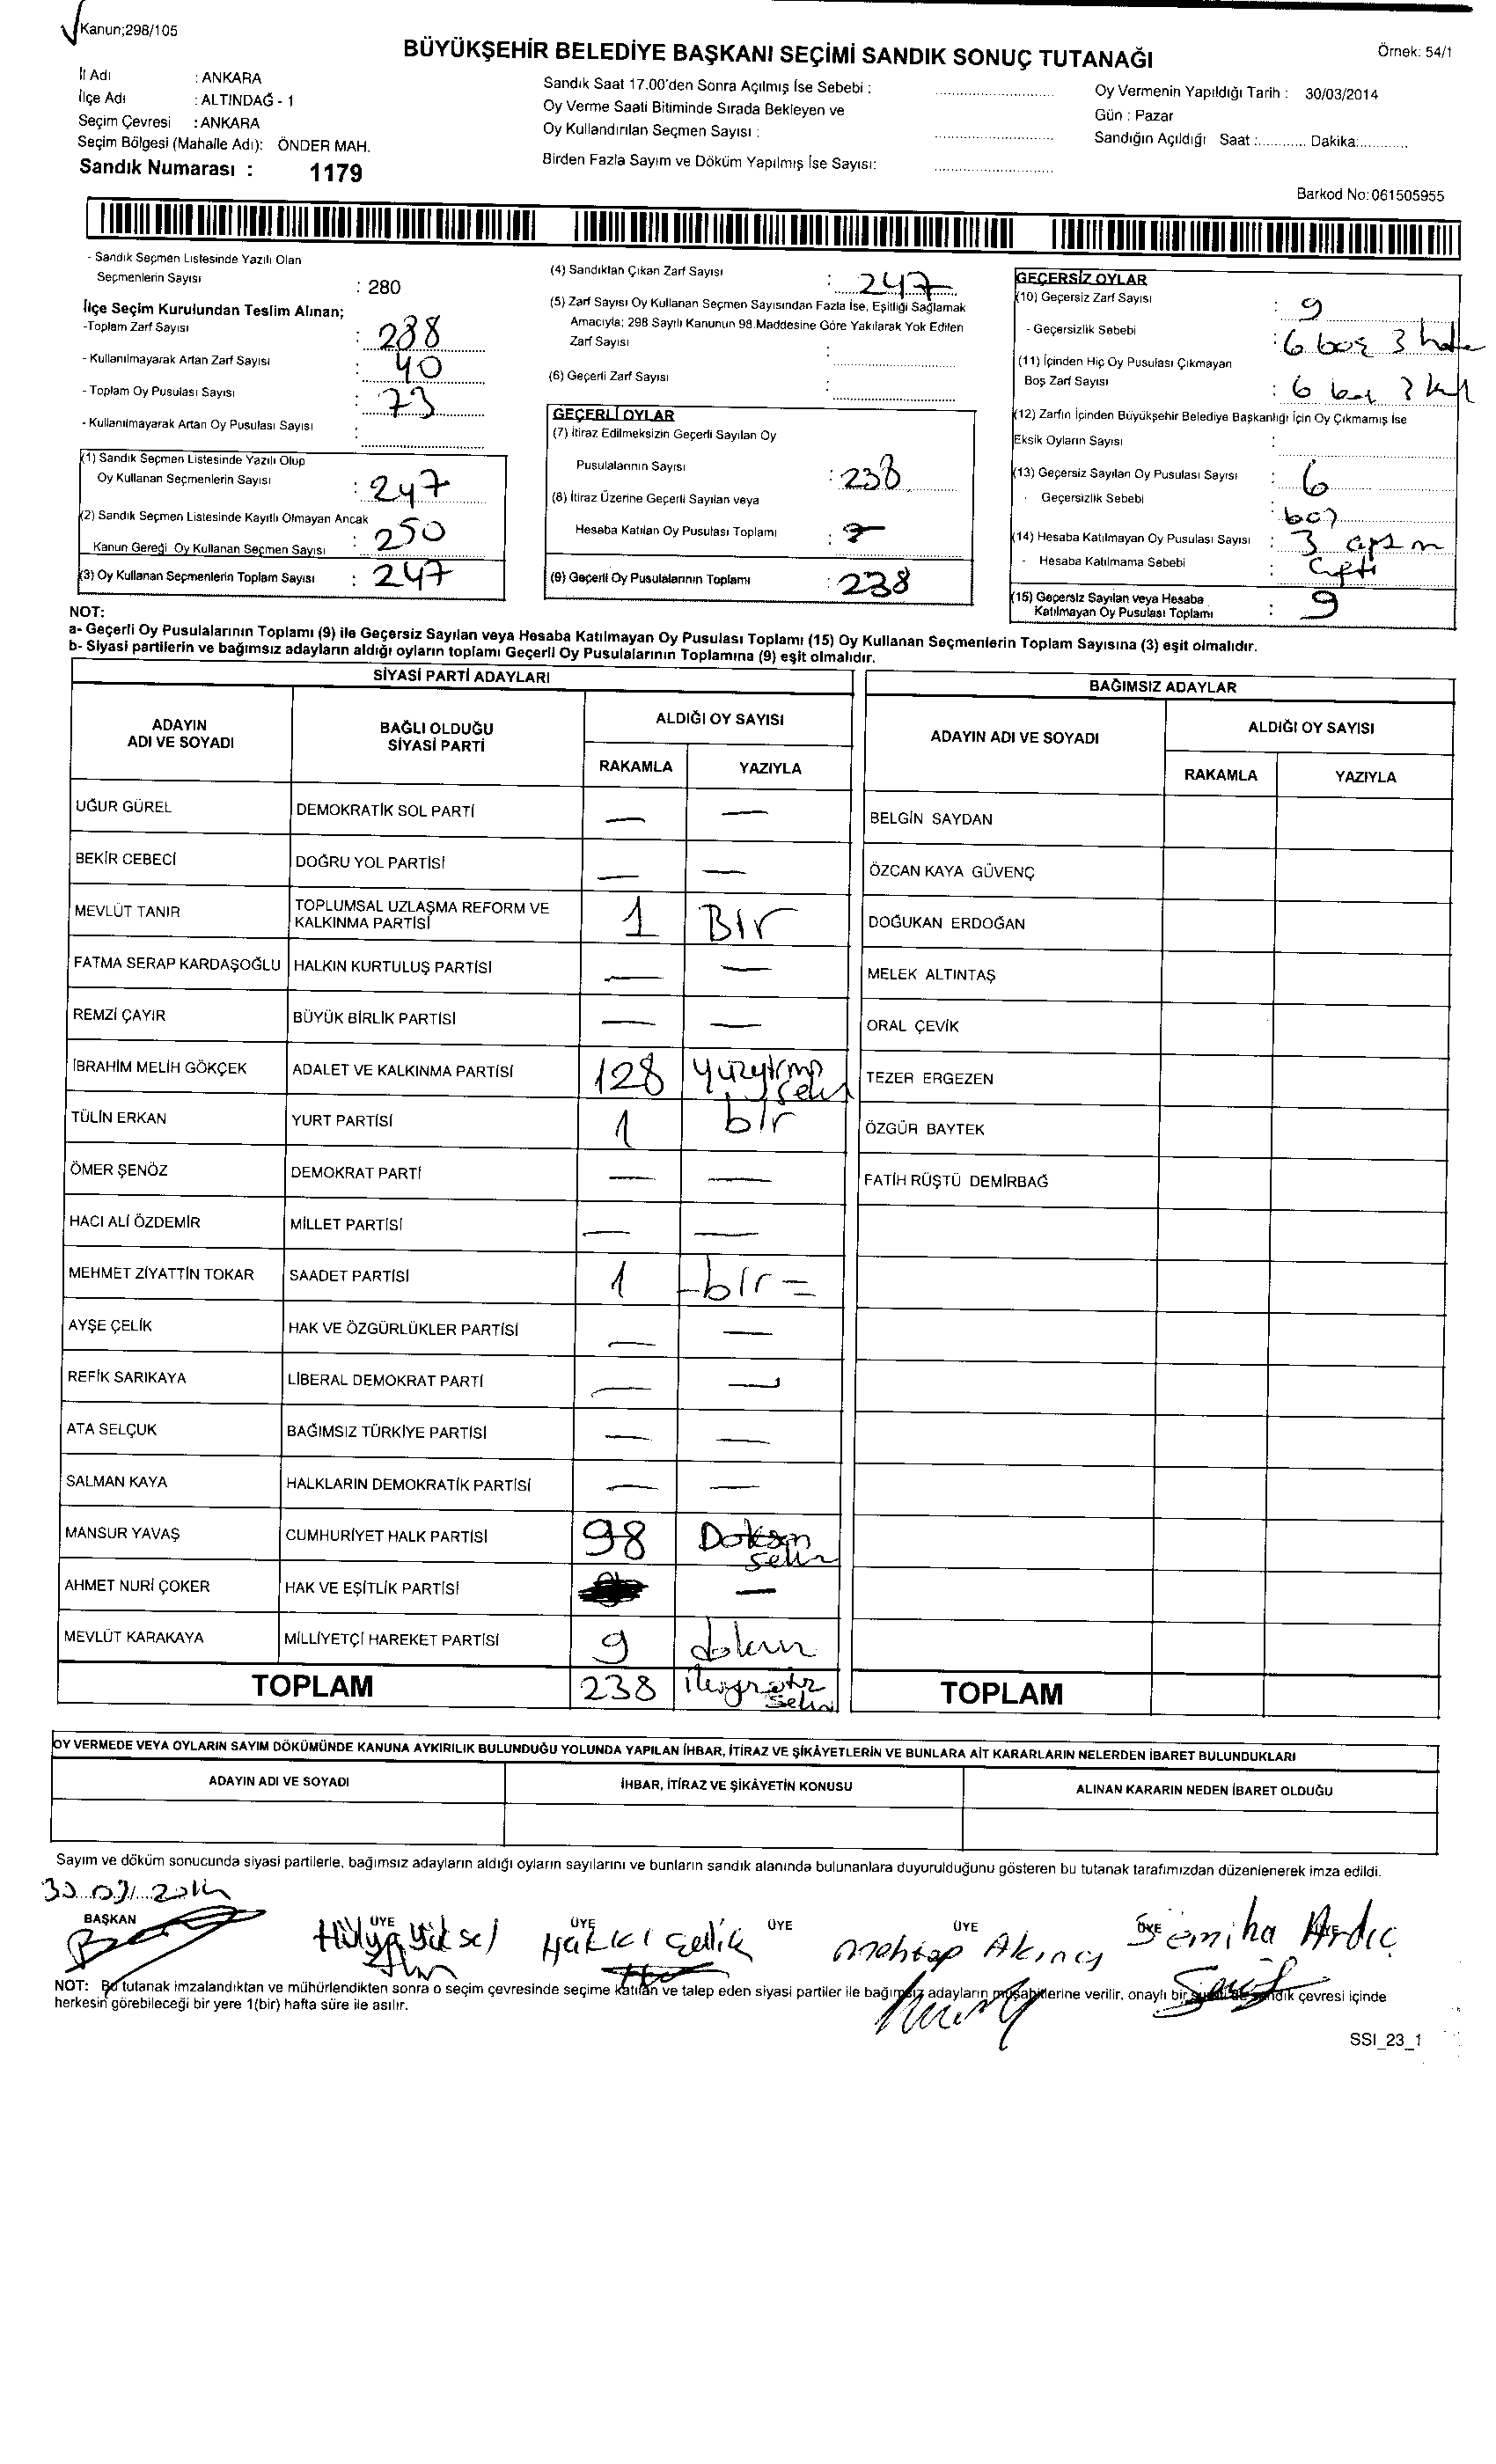 Kanun;298/105
BÜYÜKŞEHİR BELEDİYE BAŞKANI SEÇİMİ SANDIK SONUÇ TUTANAĞI
Örnek: 54/1
İl Adı : ANKARA
İlçe Adı : ALTINDAĞ - 1
Seçim Çevresi : ANKARA
Seçim Bölgesi (Mahalle Adı): ÖNDER MAH.
Sandık Numarası : 1179
Sandık Saat 17.00'den Sonra Açılmış İse Sebebi :
Oy Verme Saati Bitiminde Sırada Bekleyen ve
Oy Kullandırılan Seçmen Sayısı :
Birden Fazla Sayım ve Döküm Yapılmış İse Sayısı:
Oy Vermenin Yapıldığı Tarih : 30/03/2014
Gün : Pazar
Sandığın Açıldığı Saat :............ Dakika:............
Barkod No:061505955
- Sandık Seçmen Listesinde Yazılı Olan
Seçmenlerin Sayısı : 280
İlçe Seçim Kurulundan Teslim Alınan;
-Toplam Zarf Sayısı : 288
- Kullanılmayarak Artan Zarf Sayısı : 40
- Toplam Oy Pusulası Sayısı : 73
- Kullanılmayarak Artan Oy Pusulası Sayısı :
(1) Sandık Seçmen Listesinde Yazılı Olup
Oy Kullanan Seçmenlerin Sayısı : 247
(2) Sandık Seçmen Listesinde Kayıtlı Olmayan Ancak
Kanun Gereği Oy Kullanan Seçmen Sayısı : 250
(3) Oy Kullanan Seçmenlerin Toplam Sayısı : 247
(4) Sandıktan Çıkan Zarf Sayısı : 247
(5) Zarf Sayısı Oy Kullanan Seçmen Sayısından Fazla İse, Eşitliği Sağlamak
Amacıyla; 298 Sayılı Kanunun 98.Maddesine Göre Yakılarak Yok Edilen
Zarf Sayısı :
(6) Geçerli Zarf Sayısı :
GEÇERLİ OYLAR
(7) İtiraz Edilmeksizin Geçerli Sayılan Oy
Pusulalarının Sayısı : 238
(8) İtiraz Üzerine Geçerli Sayılan veya
Hesaba Katılan Oy Pusulası Toplamı :
(9) Geçerli Oy Pusulalarının Toplamı : 238
GEÇERSİZ OYLAR
(10) Geçersiz Zarf Sayısı : 9
- Geçersizlik Sebebi : 6 boş 3
(11) İçinden Hiç Oy Pusulası Çıkmayan
Boş Zarf Sayısı : 6
(12) Zarfın İçinden Büyükşehir Belediye Başkanlığı İçin Oy Çıkmamış İse
Eksik Oyların Sayısı :
(13) Geçersiz Sayılan Oy Pusulası Sayısı : 6
- Geçersizlik Sebebi : boş
(14) Hesaba Katılmayan Oy Pusulası Sayısı : 3
- Hesaba Katılmama Sebebi :
(15) Geçersiz Sayılan veya Hesaba
Katılmayan Oy Pusulası Toplamı : 9
NOT:
a- Geçerli Oy Pusulalarının Toplamı (9) ile Geçersiz Sayılan veya Hesaba Katılmayan Oy Pusulası Toplamı (15) Oy Kullanan Seçmenlerin Toplam Sayısına (3) eşit olmalıdır.
b- Siyasi partilerin ve bağımsız adayların aldığı oyların toplamı Geçerli Oy Pusulalarının Toplamına (9) eşit olmalıdır.
SİYASİ PARTİ ADAYLARI
ADAYIN ADI VE SOYADI BAĞLI OLDUĞU SİYASİ PARTİ ALDIĞI OY SAYISI
RAKAMLA YAZIYLA
UĞUR GÜREL DEMOKRATİK SOL PARTİ — —
BEKİR CEBECİ DOĞRU YOL PARTİSİ — —
MEVLÜT TANIR TOPLUMSAL UZLAŞMA REFORM VE KALKINMA PARTİSİ 1 Bir
FATMA SERAP KARDAŞOĞLU HALKIN KURTULUŞ PARTİSİ — —
REMZİ ÇAYIR BÜYÜK BİRLİK PARTİSİ — —
İBRAHİM MELİH GÖKÇEK ADALET VE KALKINMA PARTİSİ 128 yüzyirmi sekiz
TÜLİN ERKAN YURT PARTİSİ 1 bir
ÖMER ŞENÖZ DEMOKRAT PARTİ — —
HACI ALİ ÖZDEMİR MİLLET PARTİSİ — —
MEHMET ZİYATTİN TOKAR SAADET PARTİSİ 1 -bir=
AYŞE ÇELİK HAK VE ÖZGÜRLÜKLER PARTİSİ — —
REFİK SARIKAYA LİBERAL DEMOKRAT PARTİ — —
ATA SELÇUK BAĞIMSIZ TÜRKİYE PARTİSİ — —
SALMAN KAYA HALKLARIN DEMOKRATİK PARTİSİ — —
MANSUR YAVAŞ CUMHURİYET HALK PARTİSİ 98 Doksan sekiz
AHMET NURİ ÇOKER HAK VE EŞİTLİK PARTİSİ —
MEVLÜT KARAKAYA MİLLİYETÇİ HAREKET PARTİSİ 9 dokuz
TOPLAM 238
BAĞIMSIZ ADAYLAR
ADAYIN ADI VE SOYADI ALDIĞI OY SAYISI
RAKAMLA YAZIYLA
BELGİN SAYDAN
ÖZCAN KAYA GÜVENÇ
DOĞUKAN ERDOĞAN
MELEK ALTINTAŞ
ORAL ÇEVİK
TEZER ERGEZEN
ÖZGÜR BAYTEK
FATİH RÜŞTÜ DEMİRBAĞ
TOPLAM
OY VERMEDE VEYA OYLARIN SAYIM DÖKÜMÜNDE KANUNA AYKIRILIK BULUNDUĞU YOLUNDA YAPILAN İHBAR, İTİRAZ VE ŞİKÂYETLERİN VE BUNLARA AİT KARARLARIN NELERDEN İBARET BULUNDUKLARI
ADAYIN ADI VE SOYADI İHBAR, İTİRAZ VE ŞİKÂYETİN KONUSU ALINAN KARARIN NEDEN İBARET OLDUĞU
Sayım ve döküm sonucunda siyasi partilerle, bağımsız adayların aldığı oyların sayılarını ve bunların sandık alanında bulunanlara duyurulduğunu gösteren bu tutanak tarafımızdan düzenlenerek imza edildi.
30.03.2014
BAŞKAN ÜYE ÜYE ÜYE ÜYE ÜYE
Hülya Yüksel Hakkı Çelik Mehtap Akıncı Semiha Ardıç
NOT: Bu tutanak imzalandıktan ve mühürlendikten sonra o seçim çevresinde seçime katılan ve talep eden siyasi partiler ile bağımsız adayların müşahitlerine verilir, onaylı bir sureti de sandık çevresi içinde
herkesin görebileceği bir yere 1(bir) hafta süre ile asılır.
SSI_23_1